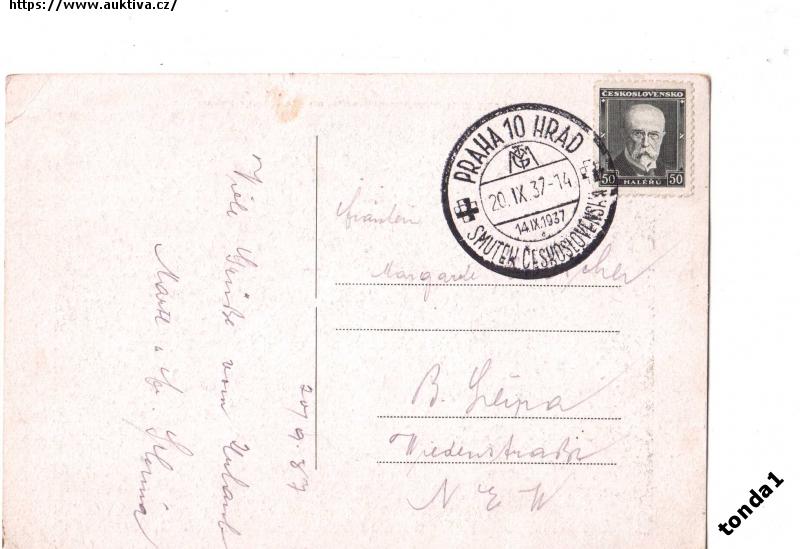 https://www.auktiva.cz/
ČESKOSLOVENSKO
50 HALÉŘŮ 50
PRAHA 10 HRAD
20.IX.37-14
14.IX.1937
SMUTEK ČESKOSLOVENSKA
Fräulein
Margarete
B. Leipa
N E W
Viele Grüße vom Urlaub
20/9.37
tonda1